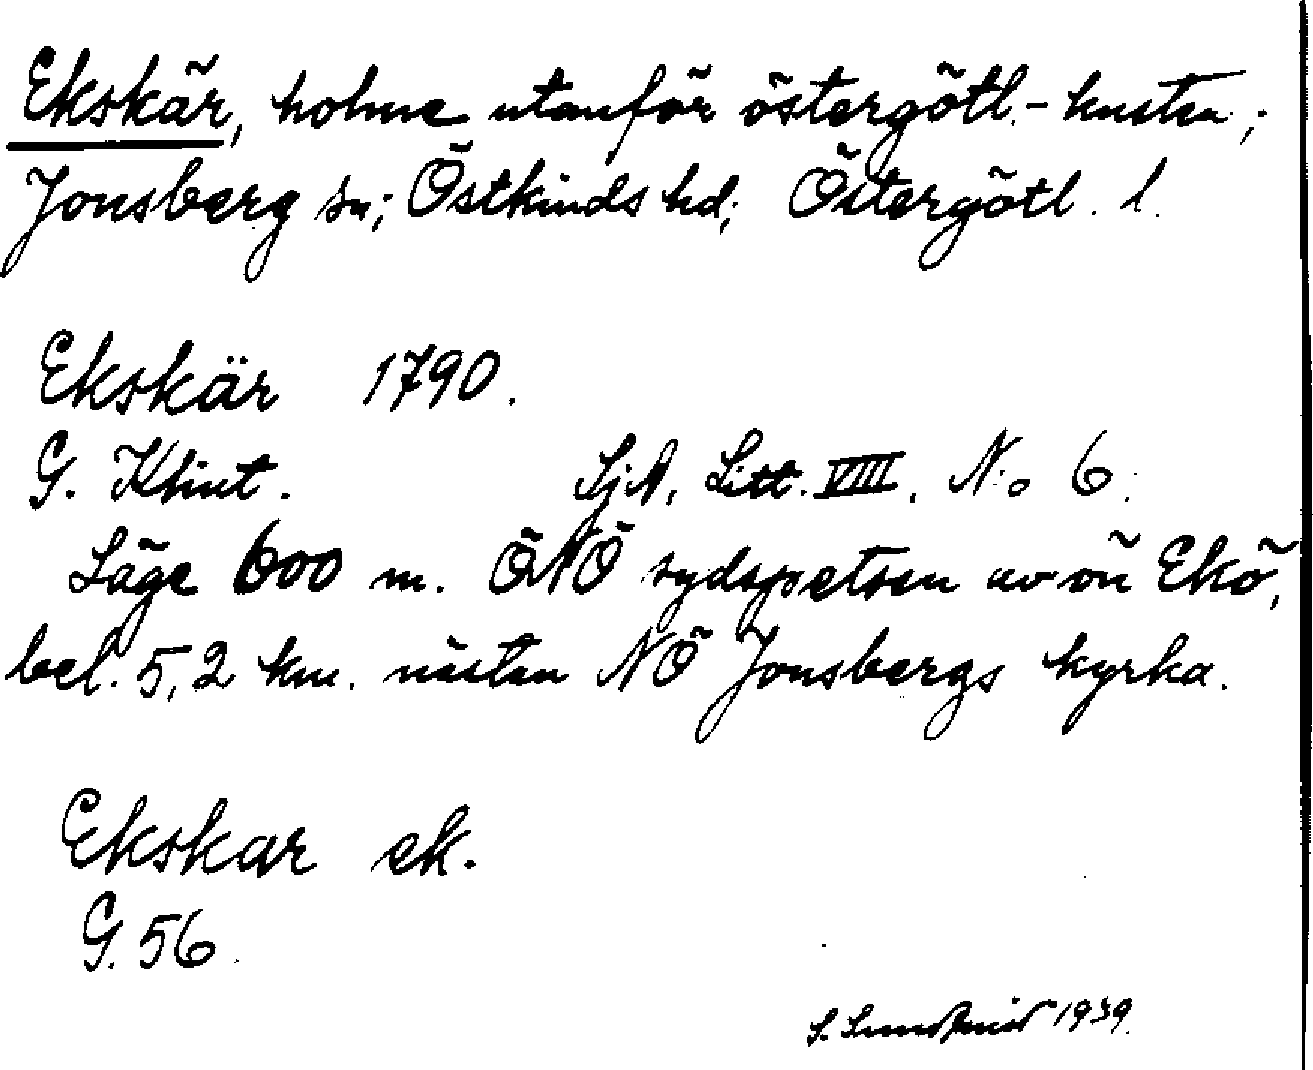 Ekskär, holme utanför östergötl.-kusten;
Jonsberg sn; Östkinds hd; Östergötl. l.
Ekskär 1790.
G. Klint. SjA, Litt. VIII. No 6.
Läge 600 m. ÖNÖ sydspetsen av ön Ekö,
bel. 5,2 km. nästan NÖ Jonsbergs kyrka.
Ekskar ek.
G. 56.
S. 1939.